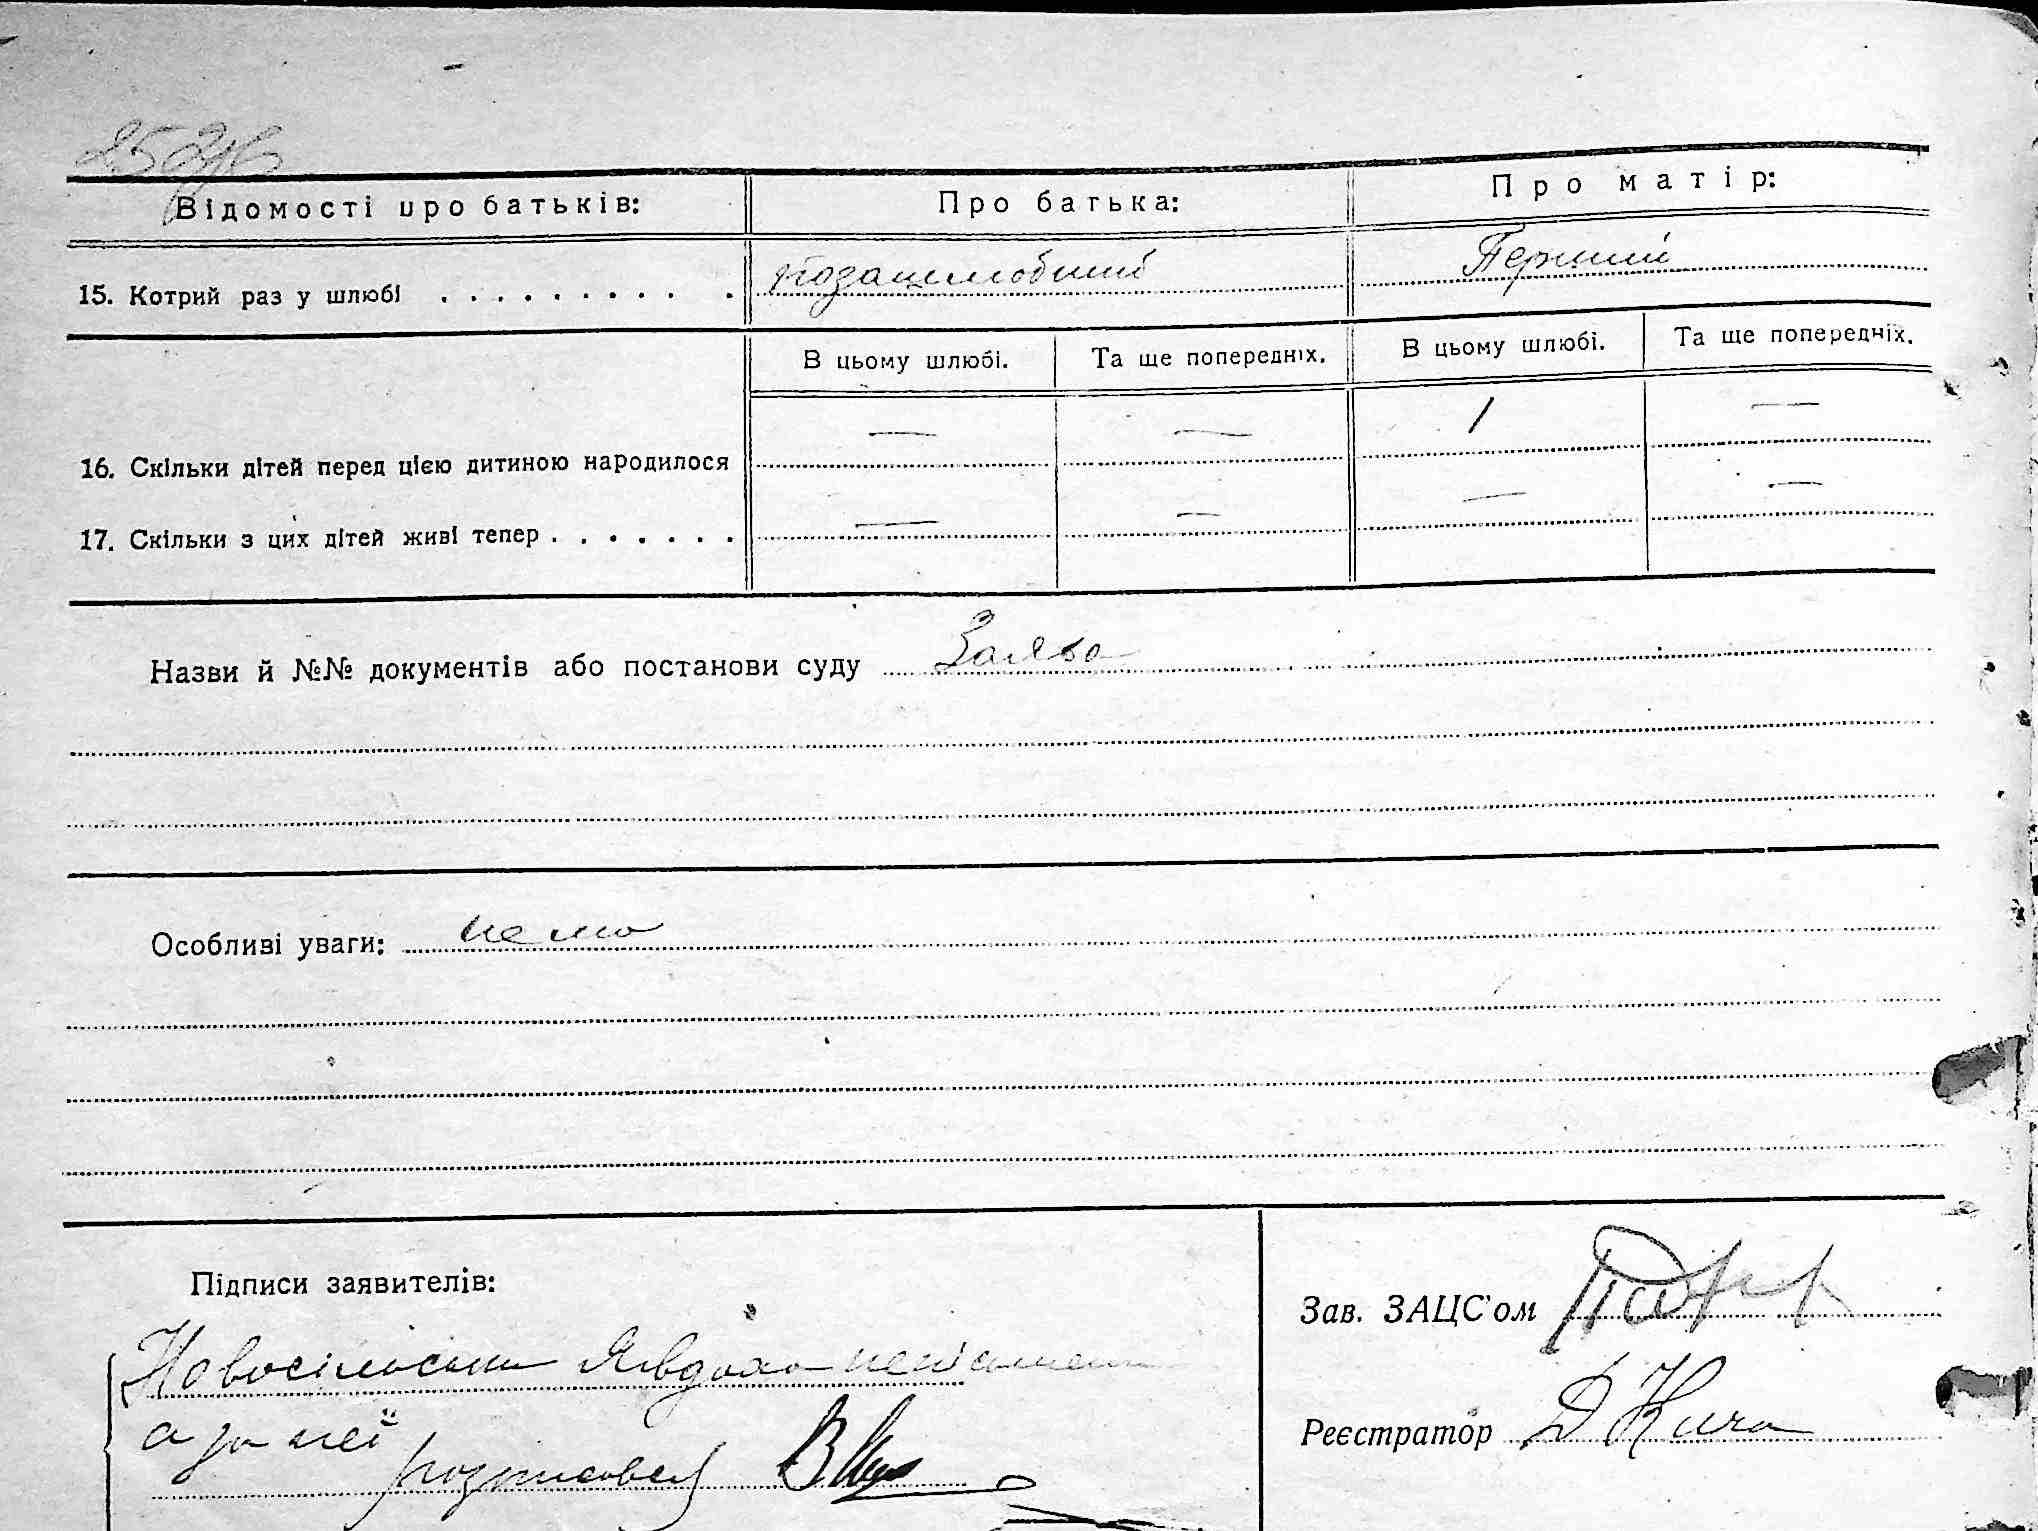 Відомості про батьків: Про батька: Про матір:
15. Котрий раз у шлюбі . . . . . . . . . . . позашлюбний Перший
В цьому шлюбі. Та ще попередніх. В цьому шлюбі. Та ще попередніх.
16. Скільки дітей перед цією дитиною народилося — — 1 —
17. Скільки з цих дітей живі тепер . . . . . . . — — — —
Назви й №№ документів або постанови суду Заява
Особливі уваги: нема
Підписи заявителів:
Зав. ЗАЦС'ом
Явдоха
а за неї
Реєстратор
розписався